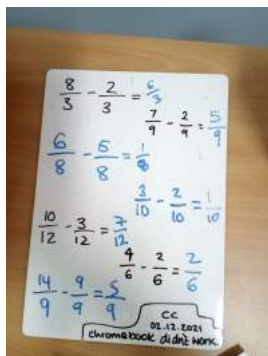 8/3 - 2/3 = 6/3
7/9 - 2/9 = 5/9
6/8 - 5/8 = 1/8
3/10 - 2/10 = 1/10
10/12 - 3/12 = 7/12
4/6 - 2/6 = 2/6
14/9 - 9/9 = 5/9
CC
02.12.2021
chromebook didn't work.